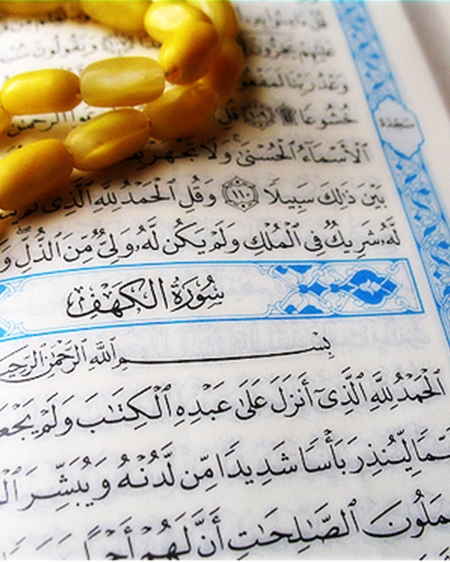 عَلَيْهِمْ يَخِرُّونَ
وَيَقُولُونَ
وَعْدُ رَبِّنَا لَمَفْعُو
خُشُوعًا ۩ ﴿١٠٩﴾ قُلِ الرَّحْمَٰنَ
سجدة
ٱلْأَسْمَآءُ ٱلْحُسْنَىٰ وَلَا تَجْهَرْ
بَيْنَ ذَٰلِكَ سَبِيلًا ﴿١١٠﴾ وَقُلِ ٱلْحَمْدُ لِلَّهِ ٱلَّذِى لَمْ
لَّهُۥ شَرِيكٌ فِى ٱلْمُلْكِ وَلَمْ يَكُن لَّهُۥ وَلِىٌّ مِّنَ ٱلذُّلِّ ۖ وَ
سُورَةُ الكَهْفِ
بِسْمِ ٱللَّهِ ٱلرَّحْمَٰنِ ٱلرَّحِيمِ
ٱلْحَمْدُ لِلَّهِ ٱلَّذِىٓ أَنزَلَ عَلَىٰ عَبْدِهِ ٱلْكِتَٰبَ وَلَمْ يَجْعَل
قَيِّمًا لِّيُنذِرَ بَأْسًا شَدِيدًا مِّن لَّدُنْهُ وَيُبَشِّرَ ٱلْ
يَعْمَلُونَ ٱلصَّٰلِحَٰتِ أَنَّ لَهُمْ أَجْرًا